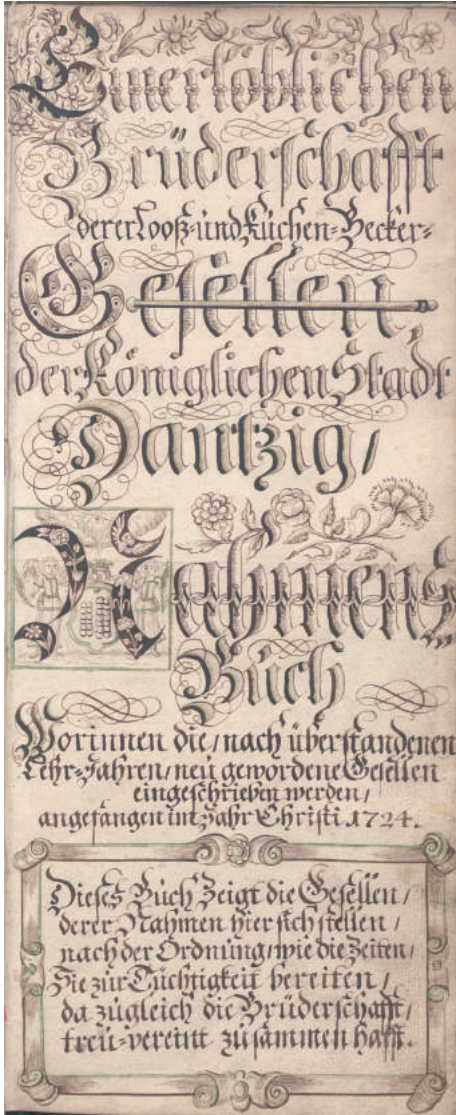 Einer löblichen
Brüderschafft
derer Looß- und Kuchen-Becker-
Gesellen,
der Königlichen Stadt
Dantzig /
Nahmens
Buch
Worinnen die / nach überstandenen
Lehr-Jahren / neu gewordene Gesellen
eingeschrieben werden /
angefangen im Jahr Christi 1724.
Dieses Buch Zeigt die Gesellen /
derer Nahmen hier sich stellen /
nach der Ordnung / wie die Zeiten /
Sie zur Tüchtigkeit bereiten /
da zugleich die Brüderschafft /
treu-vereint zusammen hafft.